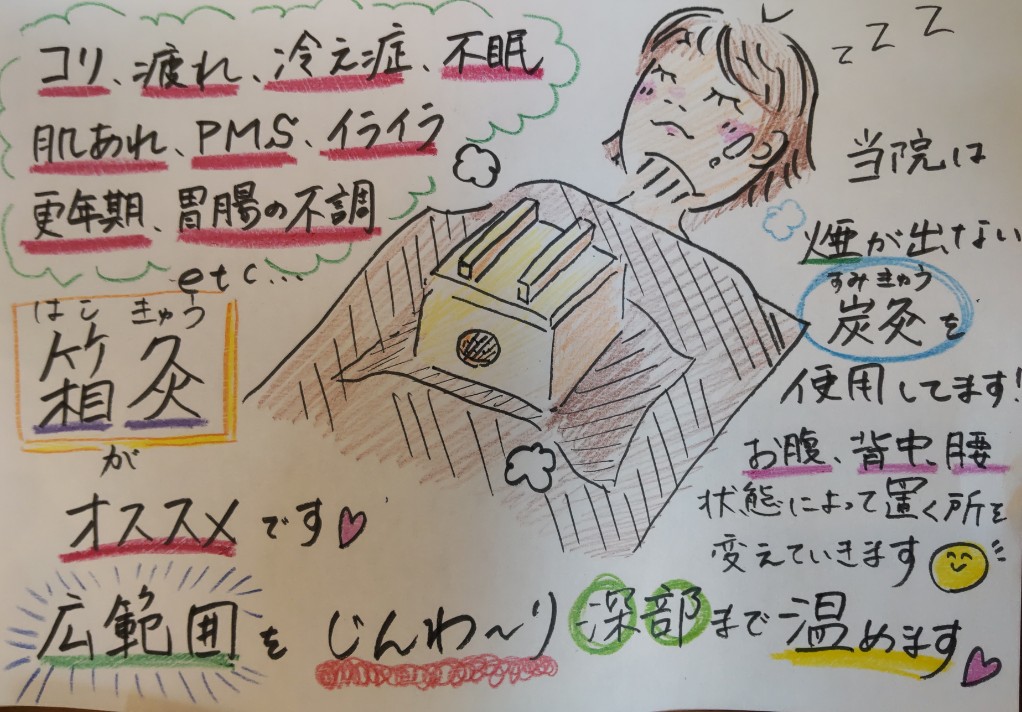 コリ、疲れ、冷え症、不眠
肌あれ、PMS、イライラ
更年期、胃腸の不調
etc...
はこきゅう
箱灸
が
オススメです
zzz
当院は
煙が出ない
すみきゅう
炭灸を
使用してます!
お腹、背中、腰
状態によって置く所を
変えていきます
広範囲をじんわ～り深部まで温めます